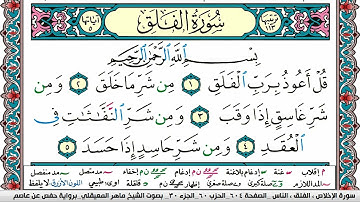 سُورَةُ الفَلَقِ
بِسْمِ ٱللَّهِ ٱلرَّحْمَٰنِ ٱلرَّحِيمِ
قُلْ أَعُوذُ بِرَبِّ ٱلْفَلَقِ ١ مِن شَرِّ مَا خَلَقَ ٢ وَمِن
شَرِّ غَاسِقٍ إِذَا وَقَبَ ٣ وَمِن شَرِّ ٱلنَّفَّٰثَٰتِ فِي
ٱلْعُقَدِ ٤ وَمِن شَرِّ حَاسِدٍ إِذَا حَسَدَ ٥
سورة الإخلاص ، الفلق ، الناس . الصفحة ٦٠٤ الحزب ٦٠ الجزء ٣٠ . بصوت الشيخ ماهر المعيقلي برواية حفص عن عاصم